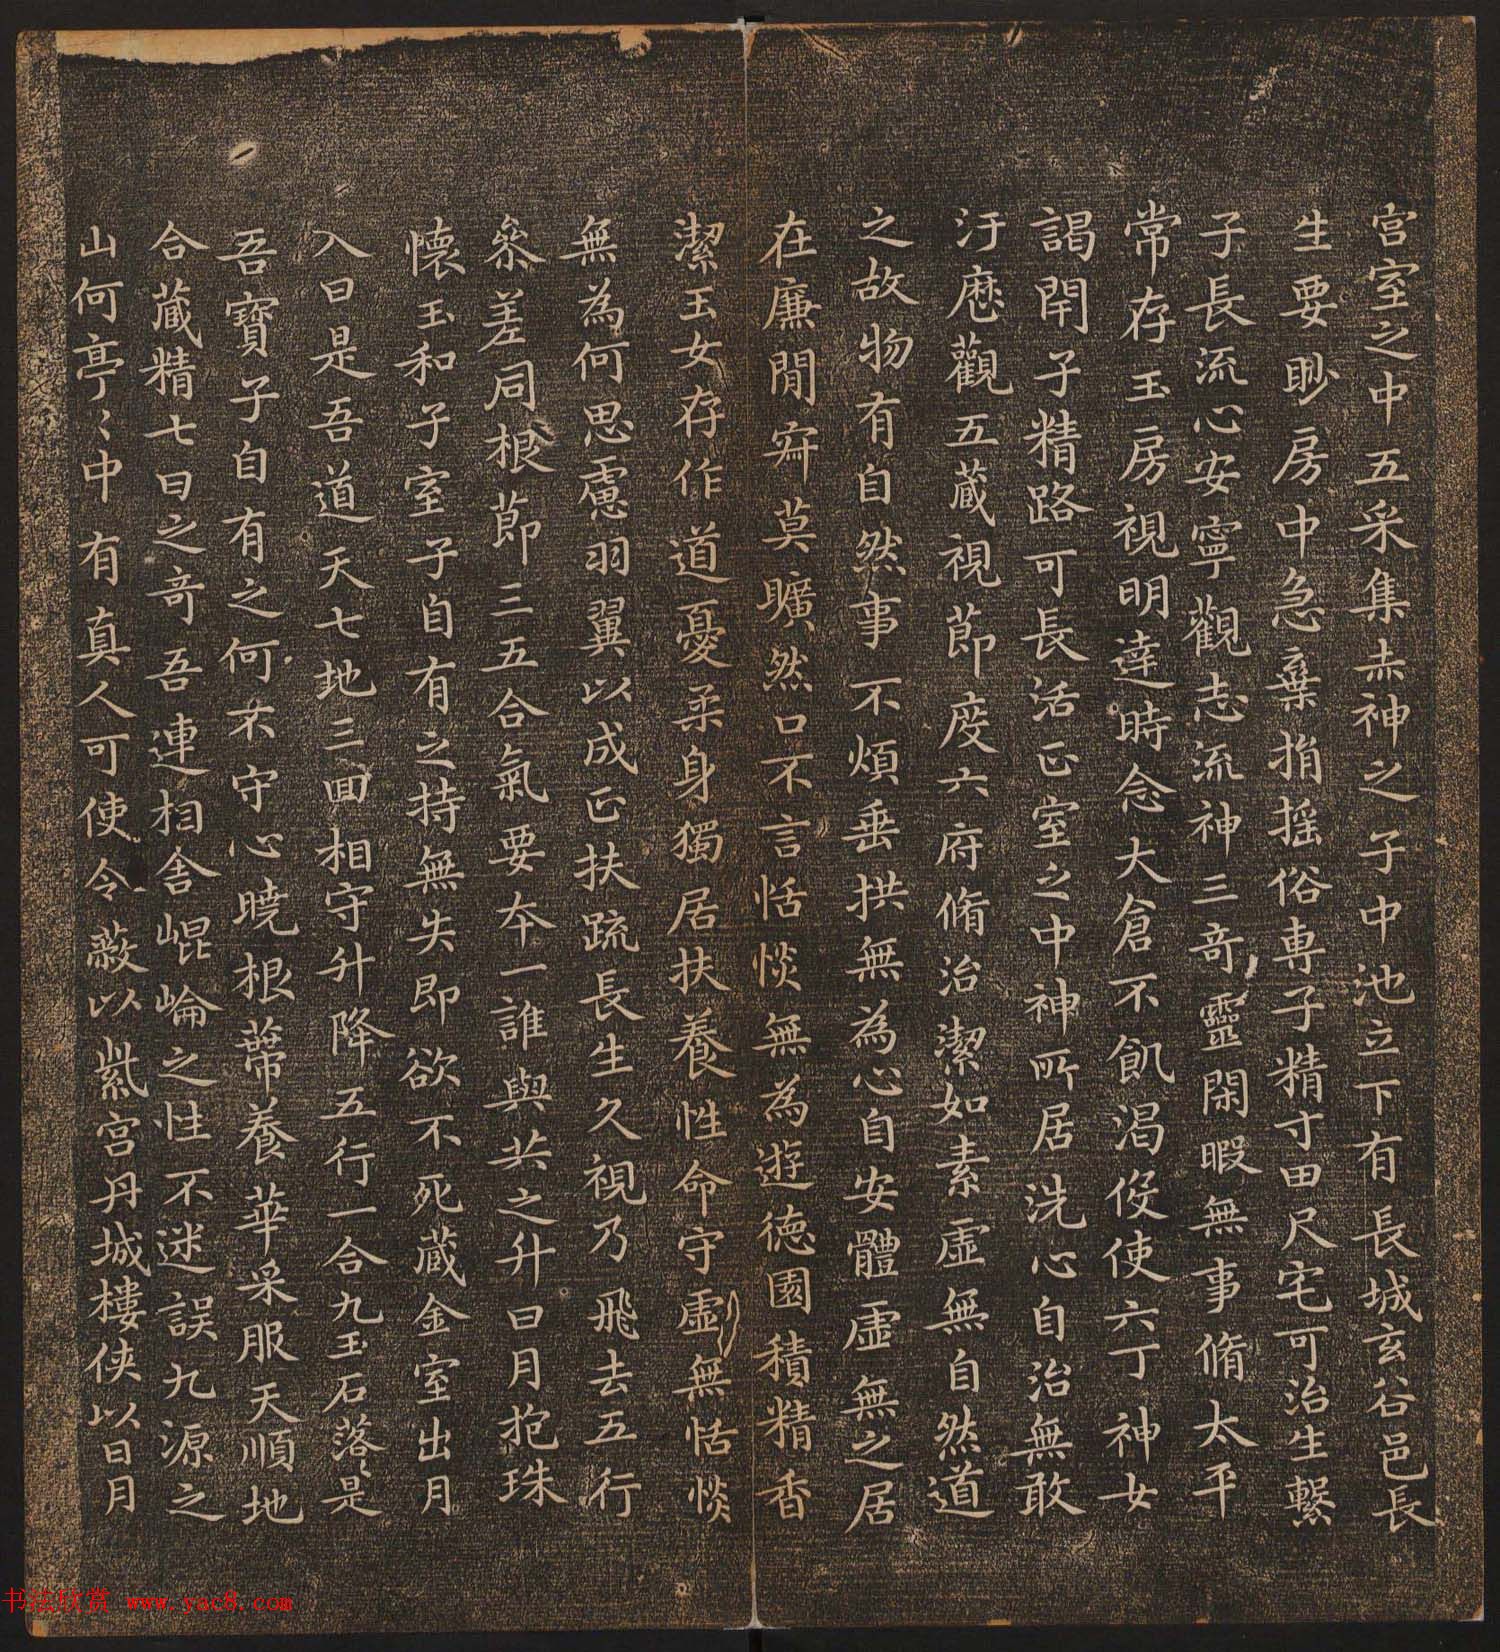 宮室之中五采集赤神之子中池立下有長城玄谷邑長
生要眇房中急棄捐搖俗専子精寸田尺宅可治生繫
子長流心安寧觀志流神三奇靈閑暇無事脩太平
常存玉房視明達時念大倉不飢渴役使六丁神女
謁閇子精路可長活正室之中神所居洗心自治無敢
汙歷觀五藏視節度六府脩治潔如素虛無自然道
之故物有自然事不煩垂拱無為心自安體虛無之居
在廉閒寂莫曠然口不言恬惔無為遊德園積精香
潔玉女存作道憂柔身獨居扶養性命守虛無恬惔
無為何思慮羽翼以成正扶疏長生久視乃飛去五行
參差同根節三五合氣要夲一誰與共之升日月抱珠
懷玉和子室子自有之持無失即欲不死藏金室出月
入日是吾道天七地三回相守升降五行一合九玉石落落是
吾寶子自有之何不守心曉根蔕養華采服天順地
合藏精七日之奇吾連相舍崐崘之性不迷誤九源之
山何亭〻中有真人可使令蔽以紫宮丹城樓俠以日月
书法欣赏 www.yac8.com